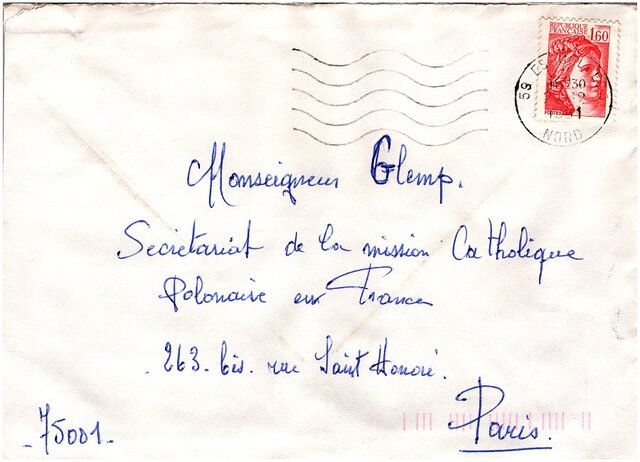 REPUBLIQUE
FRANÇAISE 1,60
59
NORD
Monseigneur Glemp.
Secrétariat de la mission Catholique
Polonaise en France
263. bis. rue Saint Honoré.
- 75001 -
Paris.